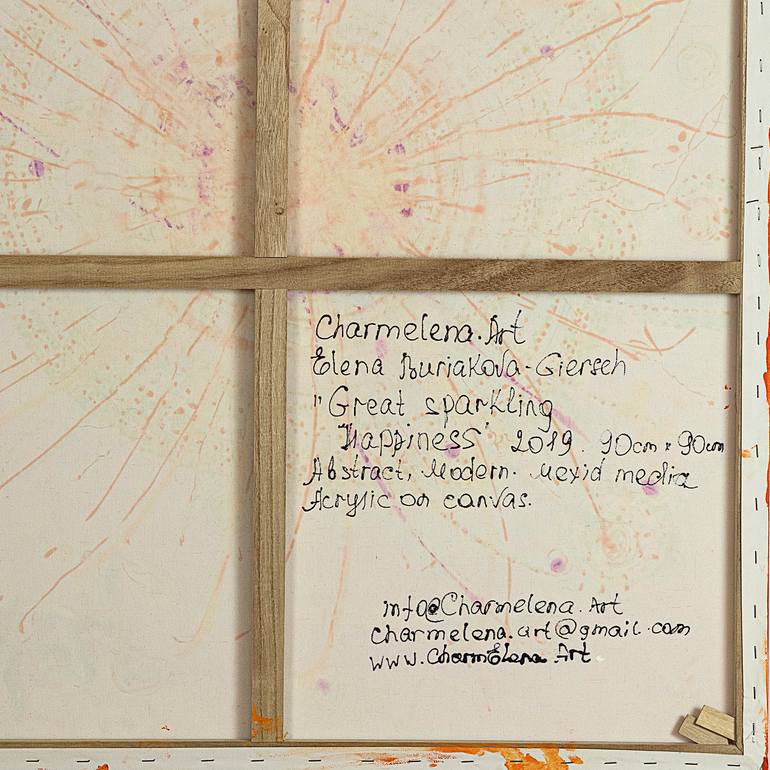 Charmelena.Art
Elena Buriakova-Giersch
"Great sparkling
Happiness" 2019. 90cm x 90cm
Abstract, Modern. Mexid media
Acrylic on canvas.
info@Charmelena.Art
charmelena.art@gmail.com
www.CharmElena.Art